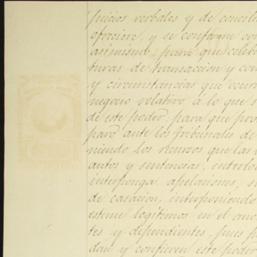 juicios verbales y de concil
ofreciere, y se conforme con
asimismo, para que celebr
turas de transaccion y con
y circunstancias que conv
negocio relativo á lo que s
de este poder, para que pro
paro ante los Tribunales de
niendo los recursos que las
autos y sentencias, interloc
interponga apelaciones, su
de casacion, interponiendo
estime legítimos en el
tes y dependientes, pues p
dan y confieren este poder